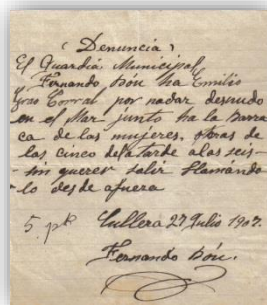 (Denuncia)
El Guardia Municipal
Fernando Bóu ha Emilio
Gras Corral por nadar desnudo
en el Mar junto ha la Barra
ca de las mujeres, Horas de
las cinco de la tarde a las seis-
- sin querer salir llamándo
- lo desde afuera
5. pts Cullera 27 Julio 1907.
Fernando Bóu.